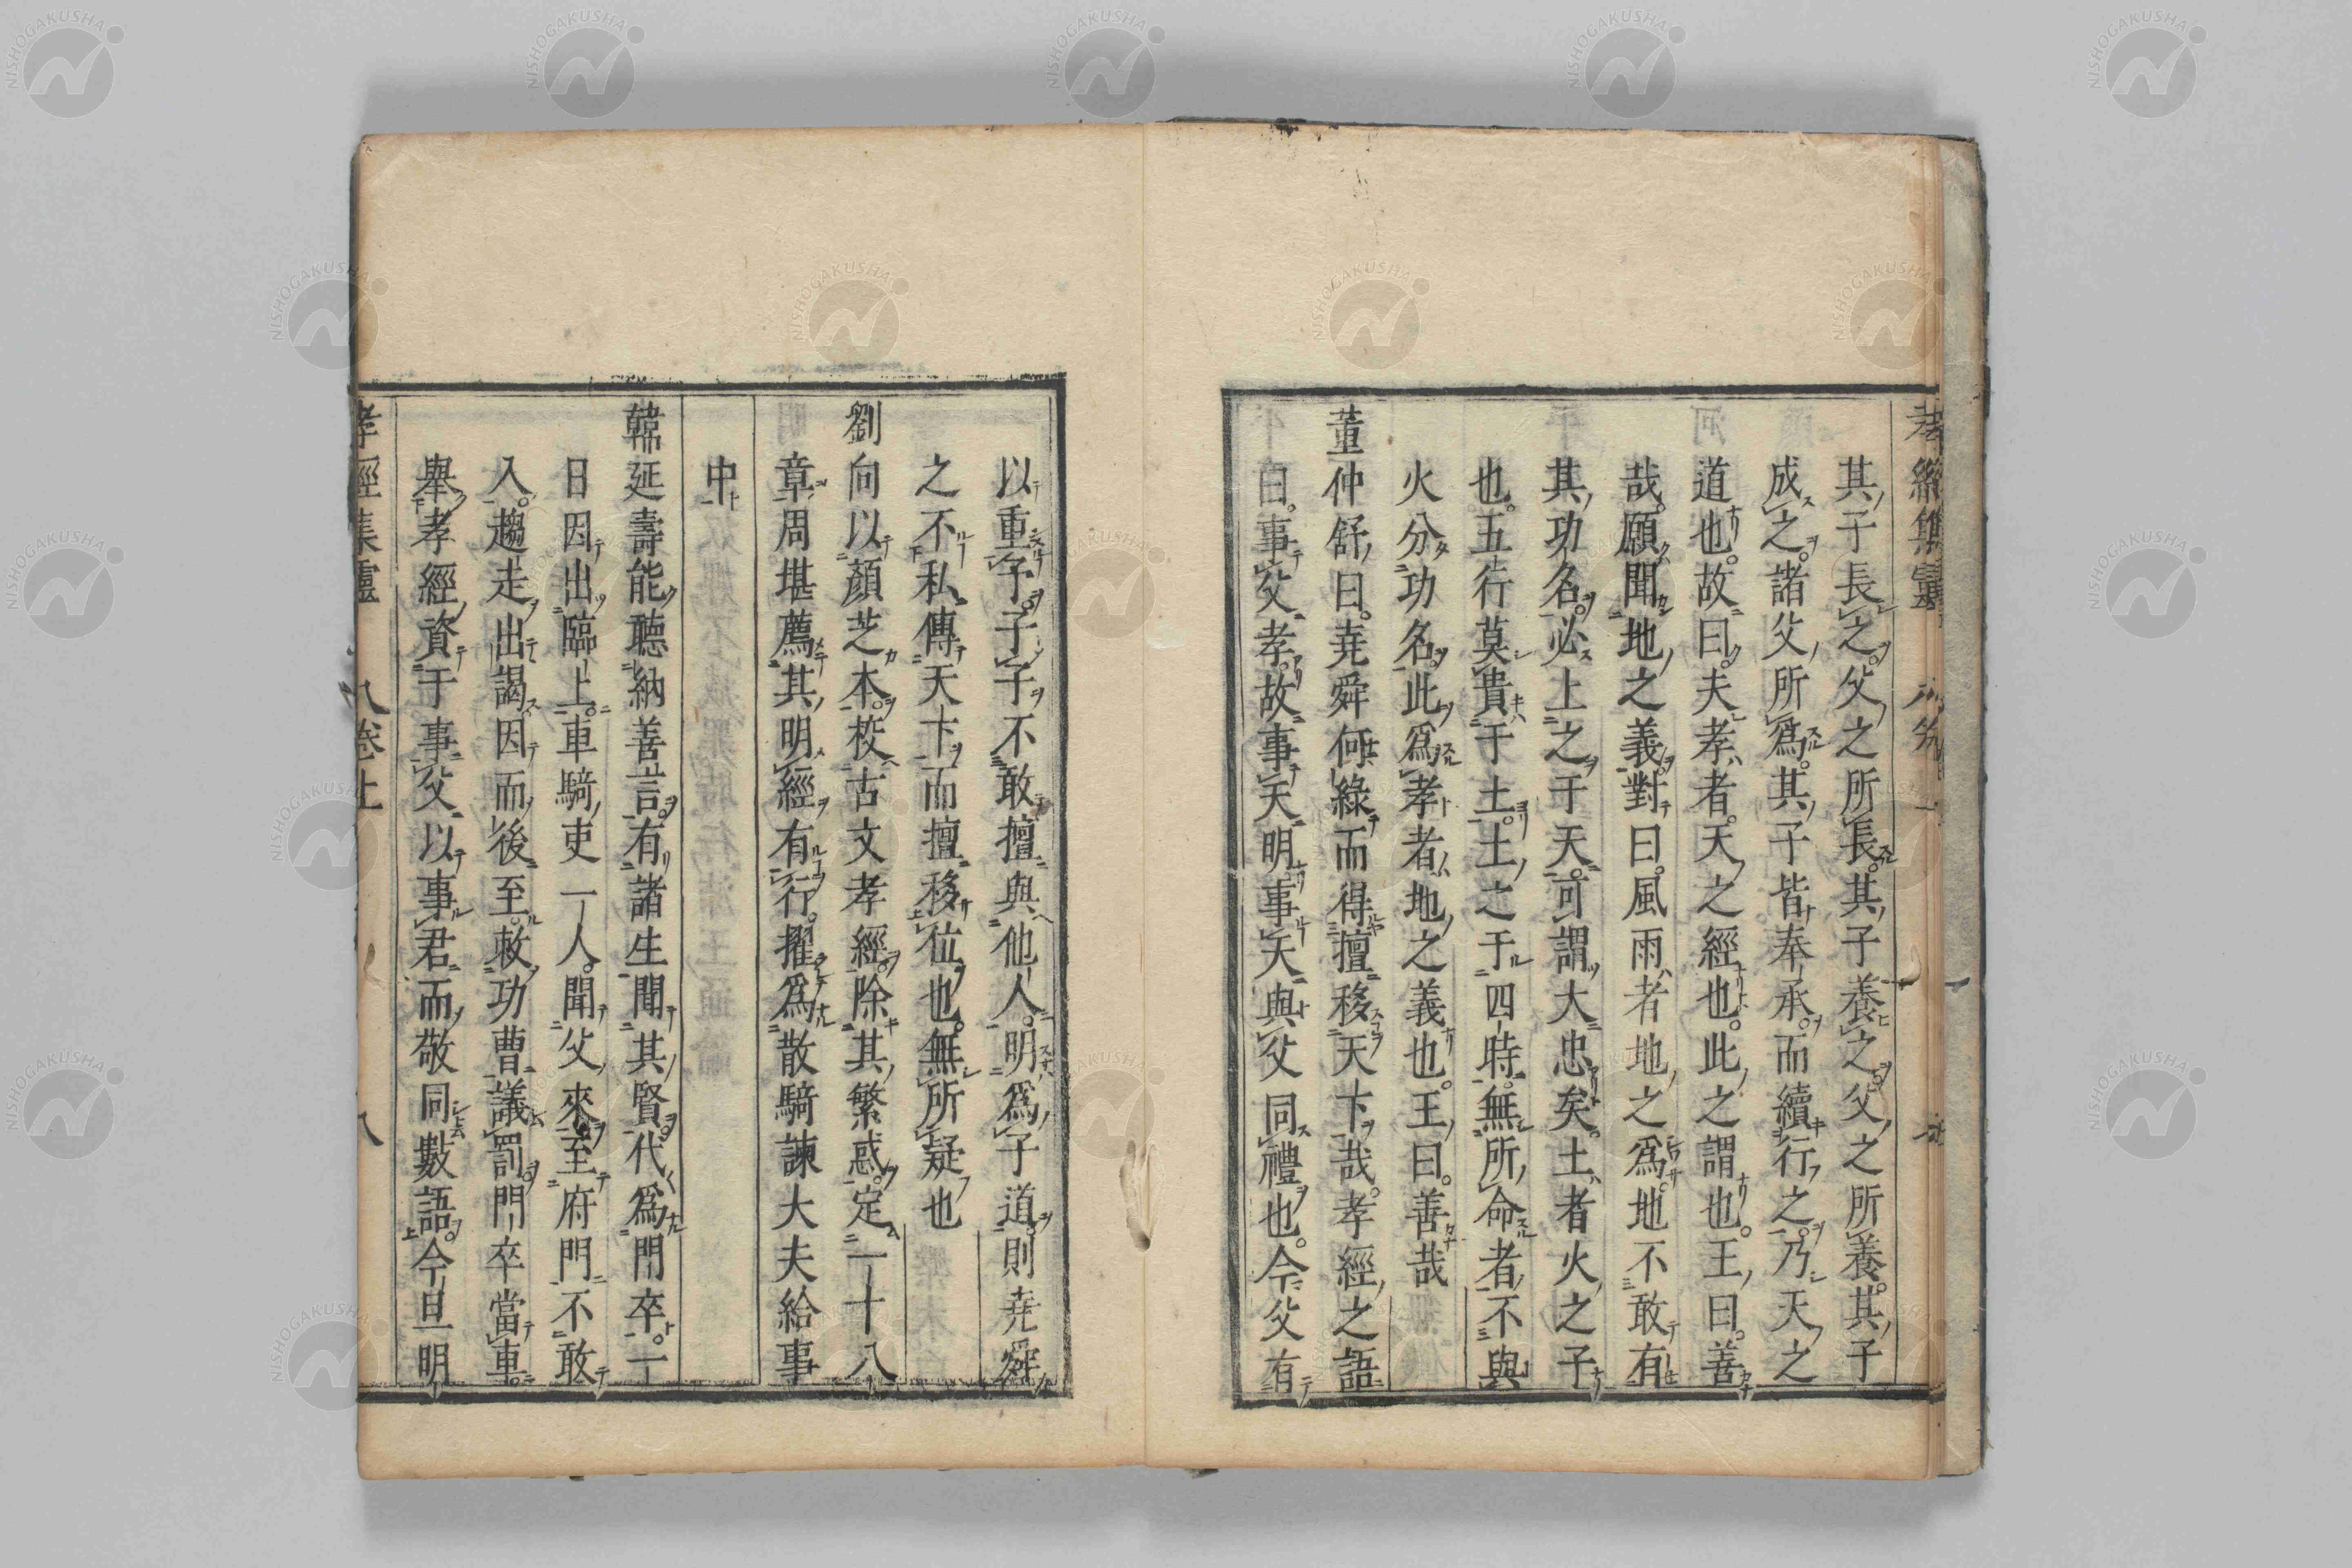 其子長之父之所長其子養之父之所養其子
成之諸父所爲其子皆奉承而續行之乃天之
道也故曰夫孝者天之經也此之謂也王曰善
哉願聞地之義對曰風雨者地之爲地不敢有
其功名必上之于天可謂大忠矣土者火之子
也五行莫貴于土土之于四時無所命者不與
火分功名此爲孝者地之義也王曰善哉
董仲舒曰堯舜何緣而得擅移天下哉孝經之語
曰事父孝故事天明事天與父同禮也今父有
以重予子子不敢擅與他人明爲子道則堯舜
之不私傳天下而擅移位也無所疑也
劉向以顏芝本校古文孝經除其繁惑定一十八
章周堪薦其明經有行擢爲散騎諫大夫給事
中
韓延壽能聽納善言有諸生聞其賢代爲門卒一
日因出臨上車騎吏一人聞父來至府門不敢
入趨走出謁因而後至敕功曹議罰門卒當車
舉孝經資于事父以事君而敬同數語今旦明
孝經集靈 卷上 八
NISHOGAKUSHA